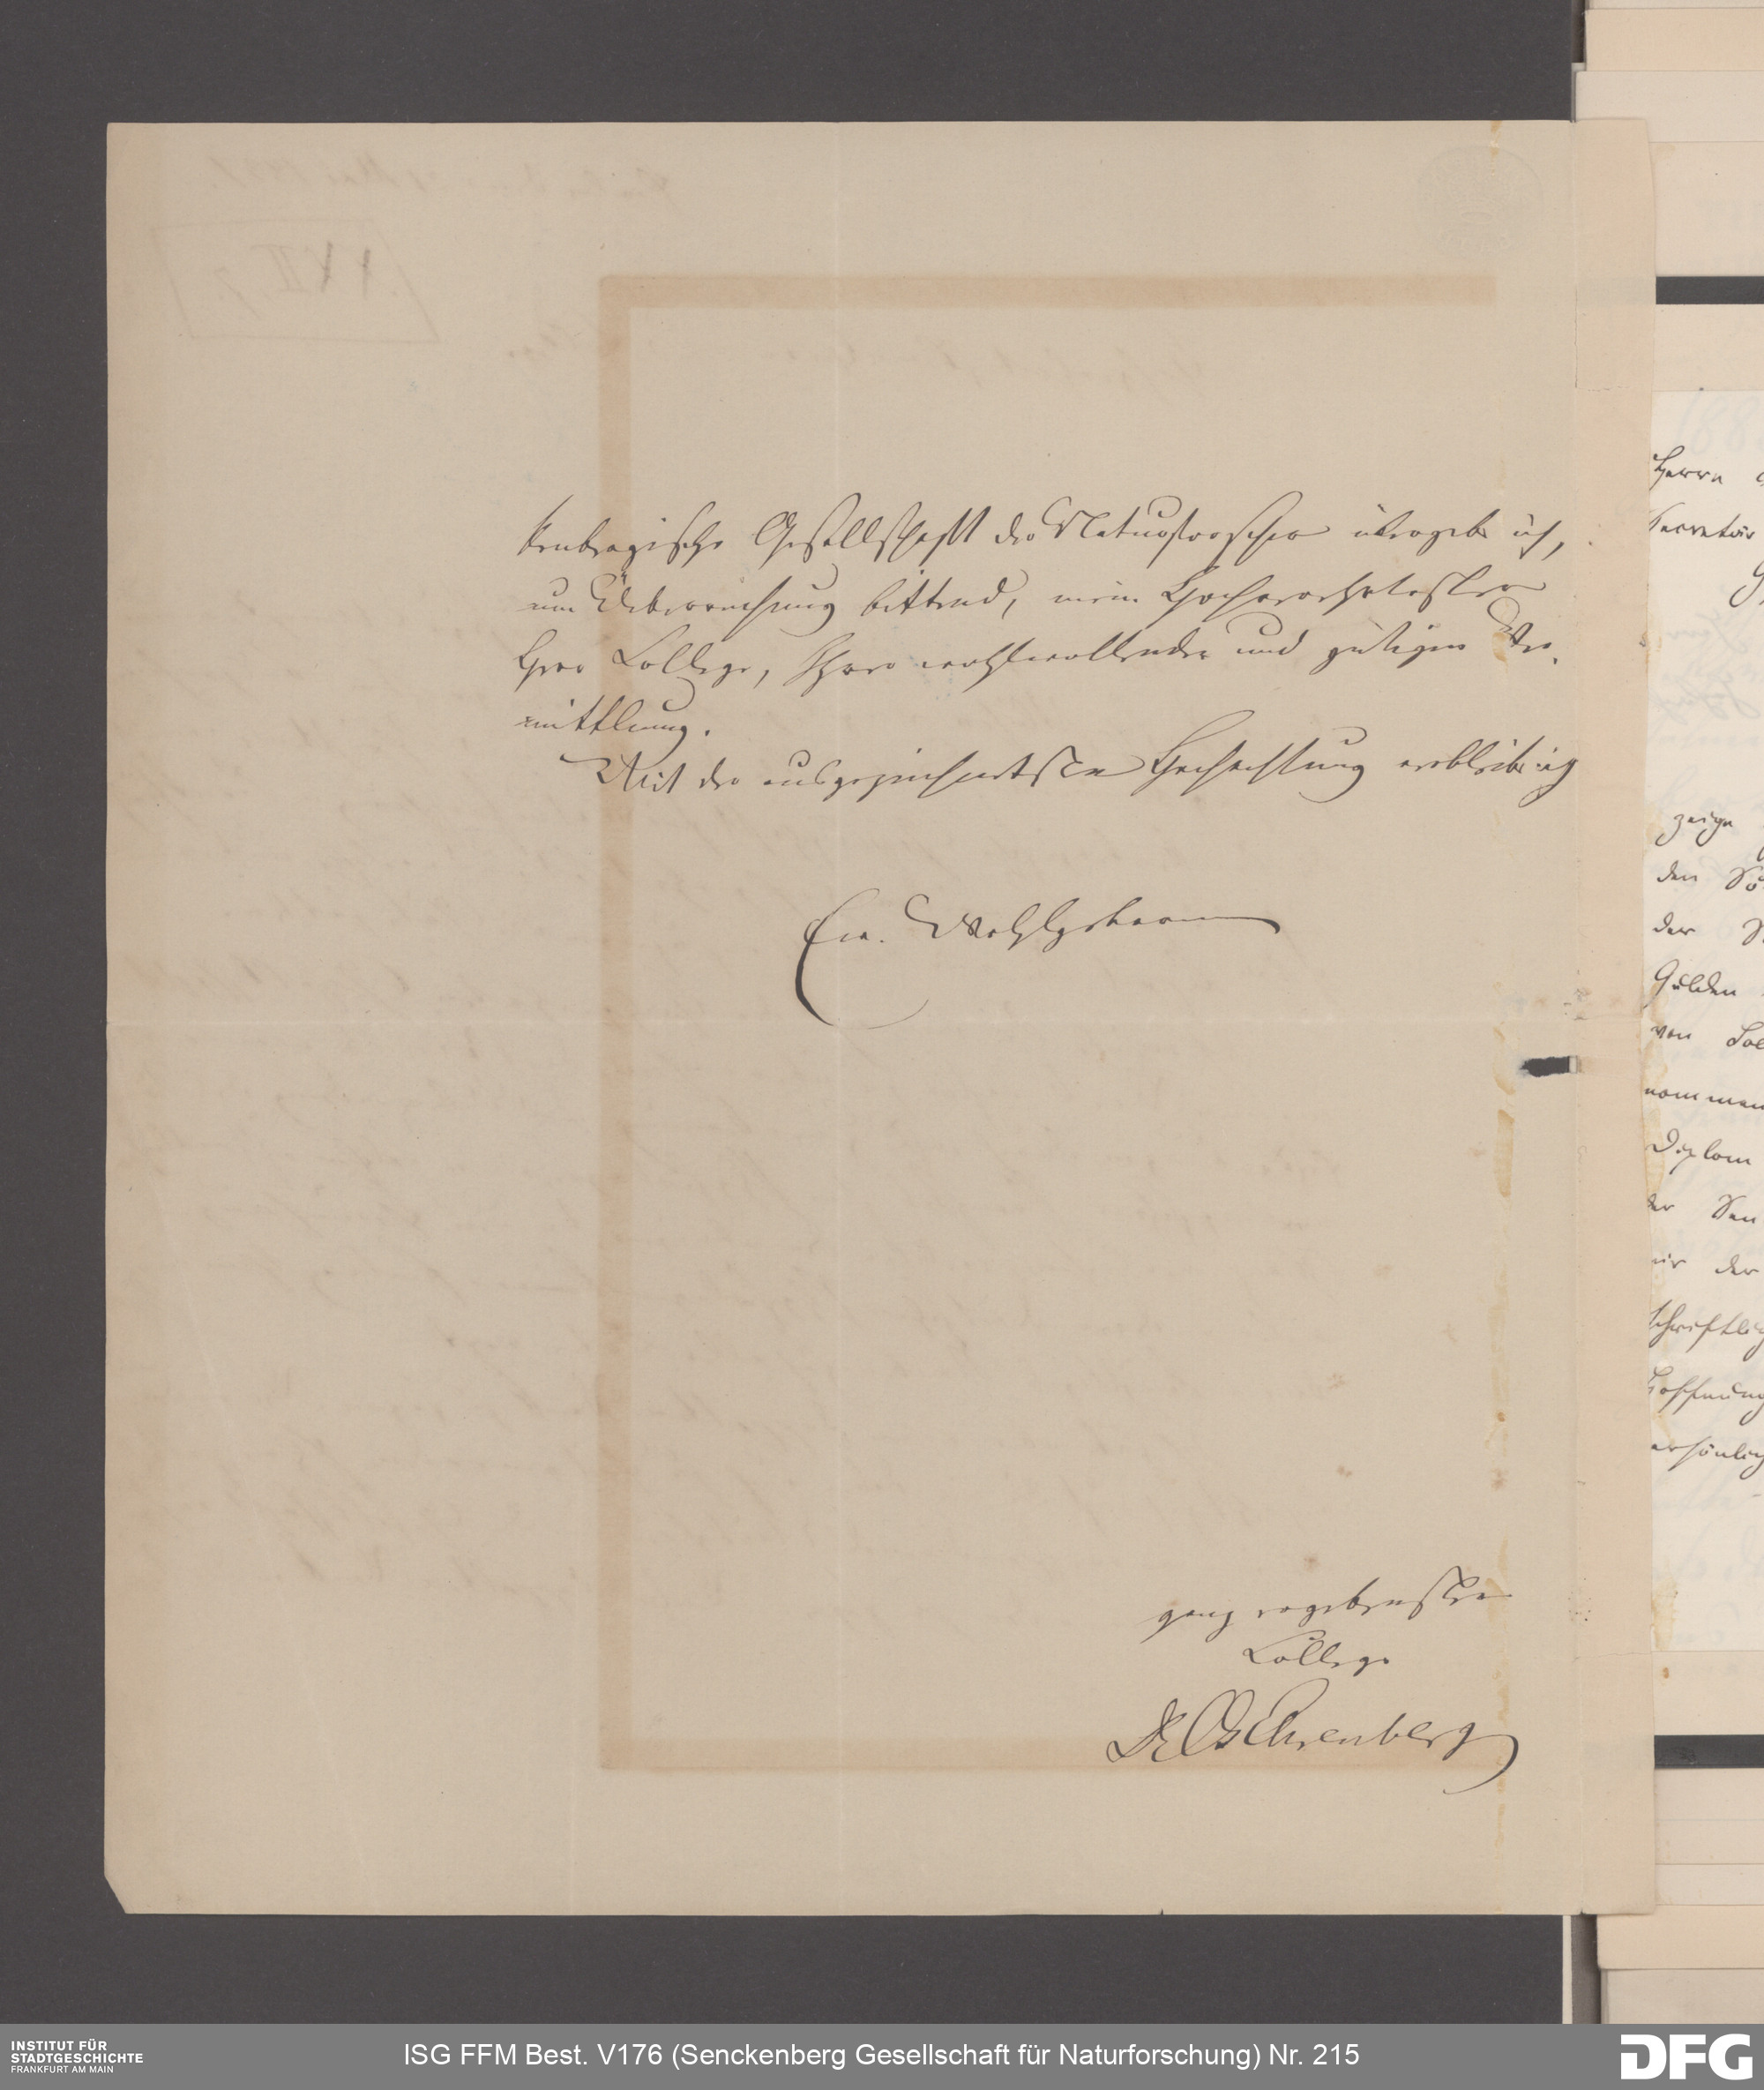 kenbergische Gesellschaft der Naturforscher übergebe ich,
um Ueberreichung bittend, mein Hochverehrtester
Herr College, Ihrer wohlwollenden und gütigen Ver-
mittlung.
Mit der ausgezeichnetsten Hochachtung verbleibe ich
Ew. Wohlgeboren
ganz ergebenster
College
Dr CG Ehrenberg
Herrn
Secretär
zeige
den
der
Gulden
von
nommen
Diplom
der Sen
mir der
schriftlich
Hoffnung
ersönlich
INSTITUT FÜR
STADTGESCHICHTE
FRANKFURT AM MAIN
ISG FFM Best. V176 (Senckenberg Gesellschaft für Naturforschung) Nr. 215
DFG